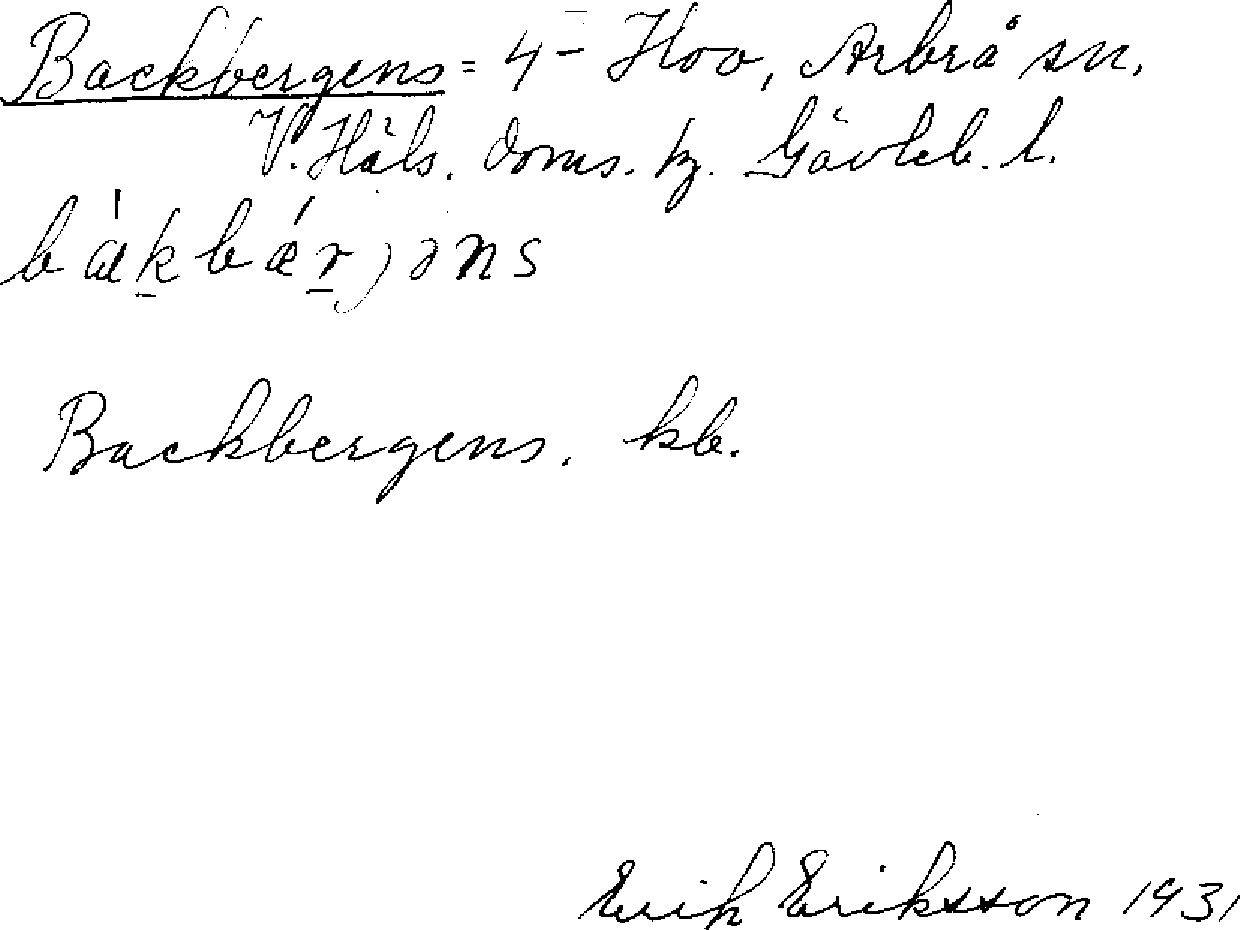 Backbergens = 4 - Hov, Arbrå sn.
V. Häls. doms. tg. Gävleb. l.
bákbǽrjəns
Backbergens. kb.
Erik Eriksson 1931